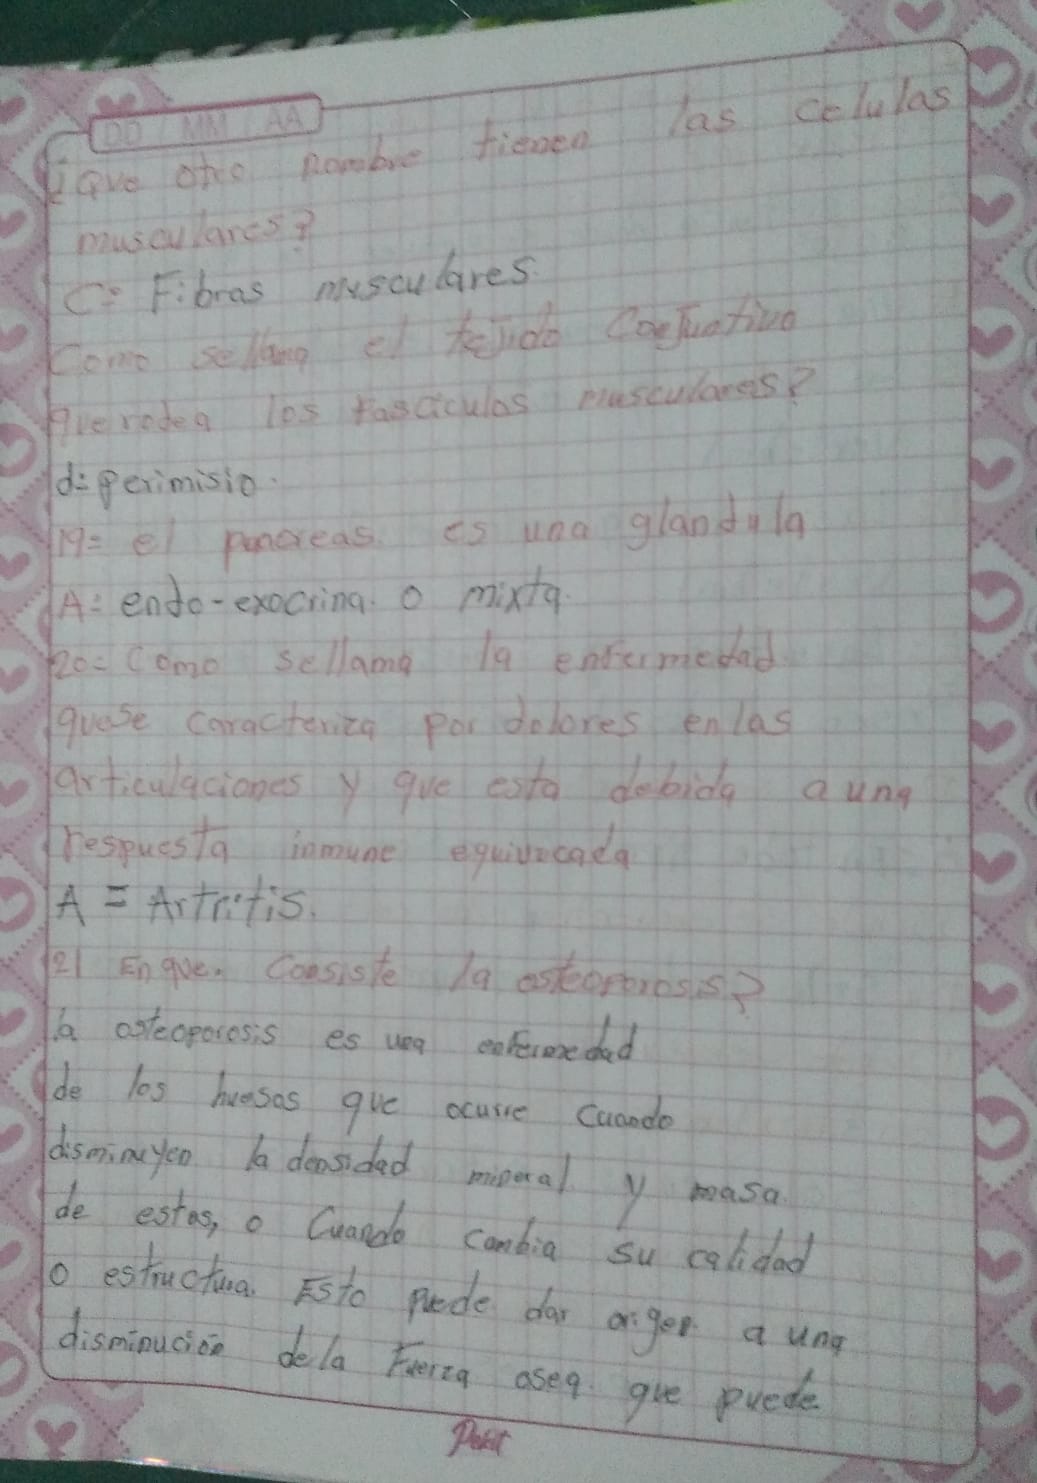 DD MM AA
¿Que otro nombre tienen las celulas
musculares?
C= Fibras musculares.
Como sellama el tejido Conjuntivo
que rodea los fasciculos musculares?
d= perimisio.
19= el pancreas. es una glandula
A= endo-exocrina. o mixta.
20= Como sellama la enfermedad
quese caracteriza por dolores enlas
articulaciones y que esta debida a una
respuesta inmune equivocada
A = Artritis.
21 En que. Consiste la osteoporosis?
la osteoporosis es una enfermedad
de los huesos que ocurre Cuando
disminuyen la densidad mineral y masa.
de estos, o Cuando cambia su calidad
o estructura. Esto puede dar origen a una
disminución dela Fuerza osea. que puede